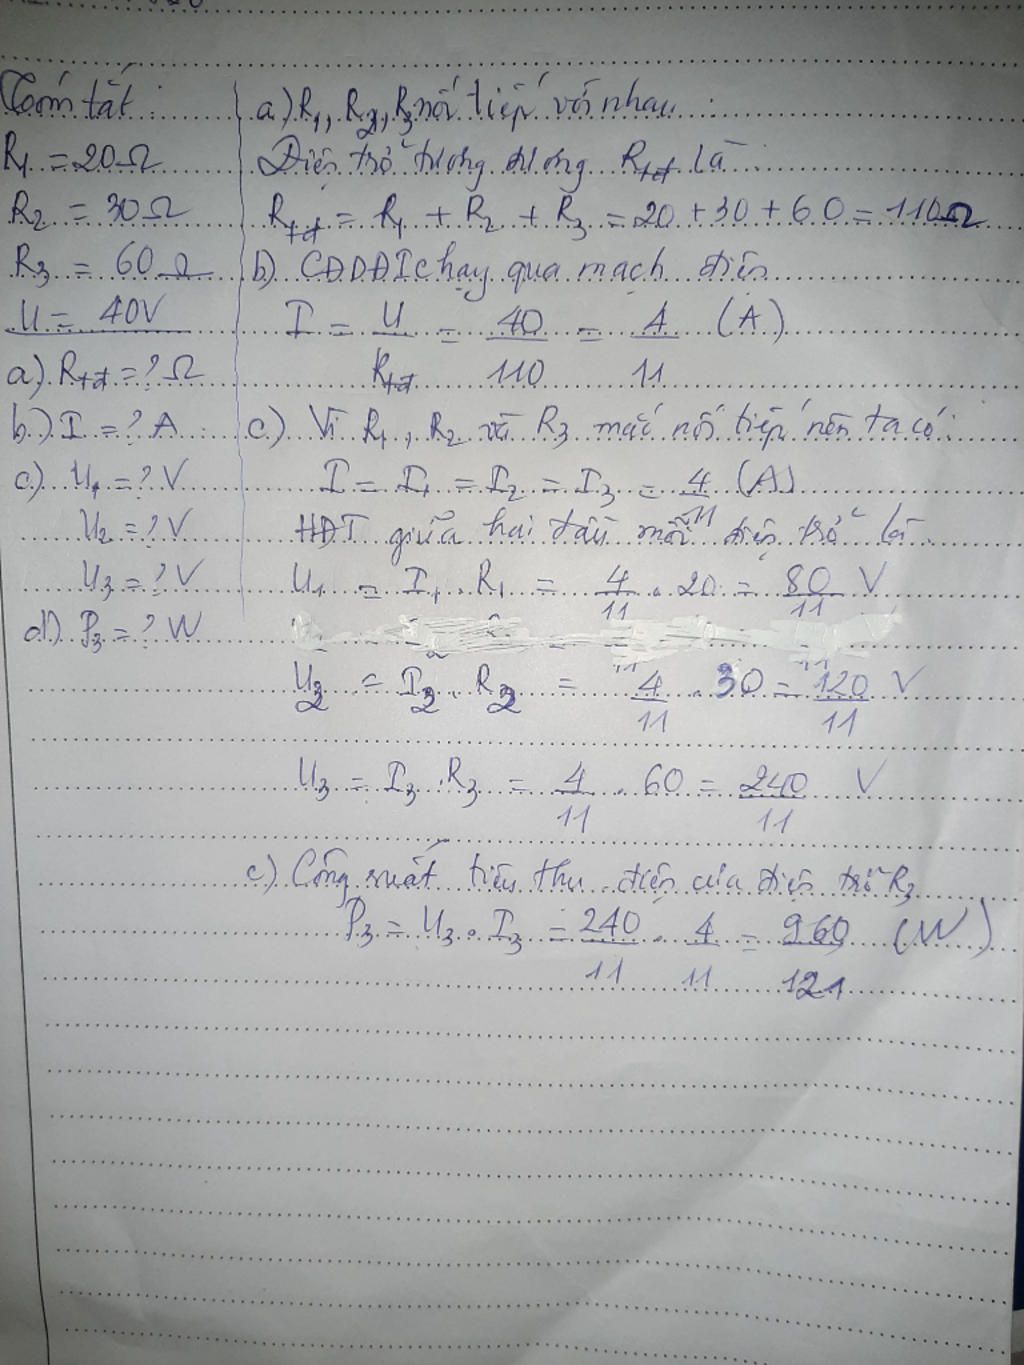 Tóm tắt :
R1 = 20Ω
R2 = 30Ω
R3 = 60Ω
U = 40V
a) Rtđ = ? Ω
b) I = ? A
c) U1 = ? V
U2 = ? V
U3 = ? V
d) P3 = ? W
a) R1, R2, R3 nối tiếp với nhau :
Điện trở tương đương Rtđ là :
Rtđ = R1 + R2 + R3 = 20 + 30 + 60 = 110Ω
b) CĐDĐ I chạy qua mạch điện
I = U/Rtđ = 40/110 = 4/11 (A)
c) Vì R1, R2 và R3 mắc nối tiếp nên ta có :
I = I1 = I2 = I3 = 4/11 (A)
HĐT giữa hai đầu mỗi điện trở là
U1 = I1 . R1 = 4/11 . 20 = 80/11 V
U2 = I2 . R2 = 4/11 . 30 = 120/11 V
U3 = I3 . R3 = 4/11 . 60 = 240/11 V
c) Công suất tiêu thụ điện của điện trở R3
P3 = U3 . I3 = 240/11 . 4/11 = 960/121 (W)